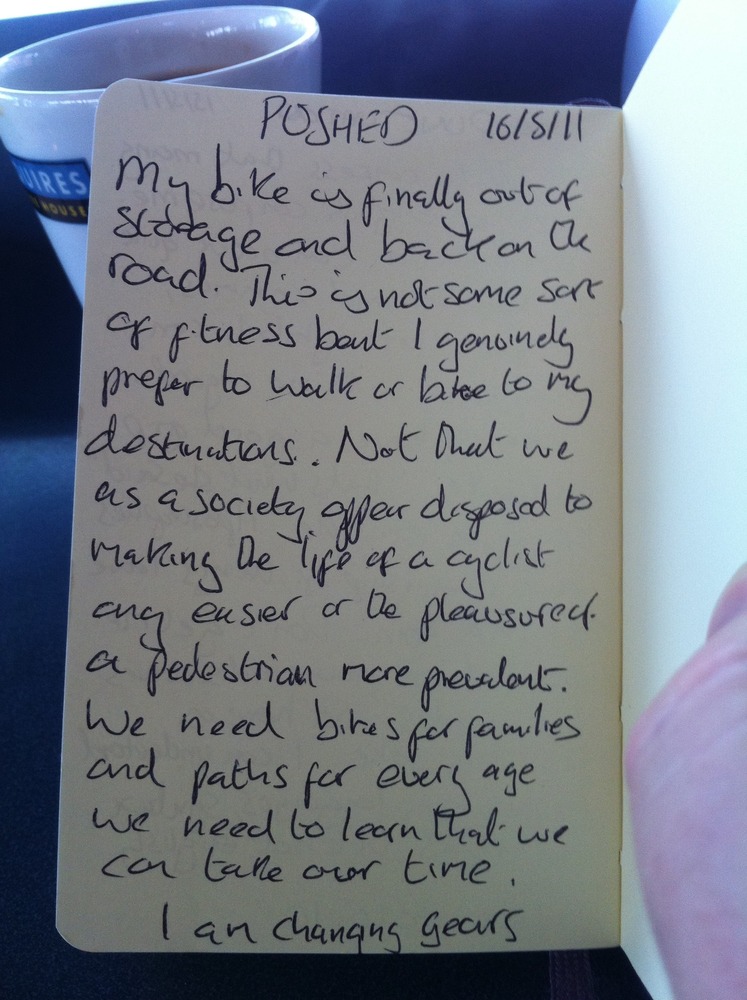 UIRES
HOUSE
PUSHED 16/5/11
My bike is finally out of
storage and back on the
road. This is not some sort
of fitness bent I genuinely
prefer to walk or bike to my
destinations. Not that we
as a society appear disposed to
making the life of a cyclist
any easier or the pleausure of
a pedestrian more prevalent.
We need bikes for families
and paths for every age
we need to learn that we
can take our time.
I am changing gears